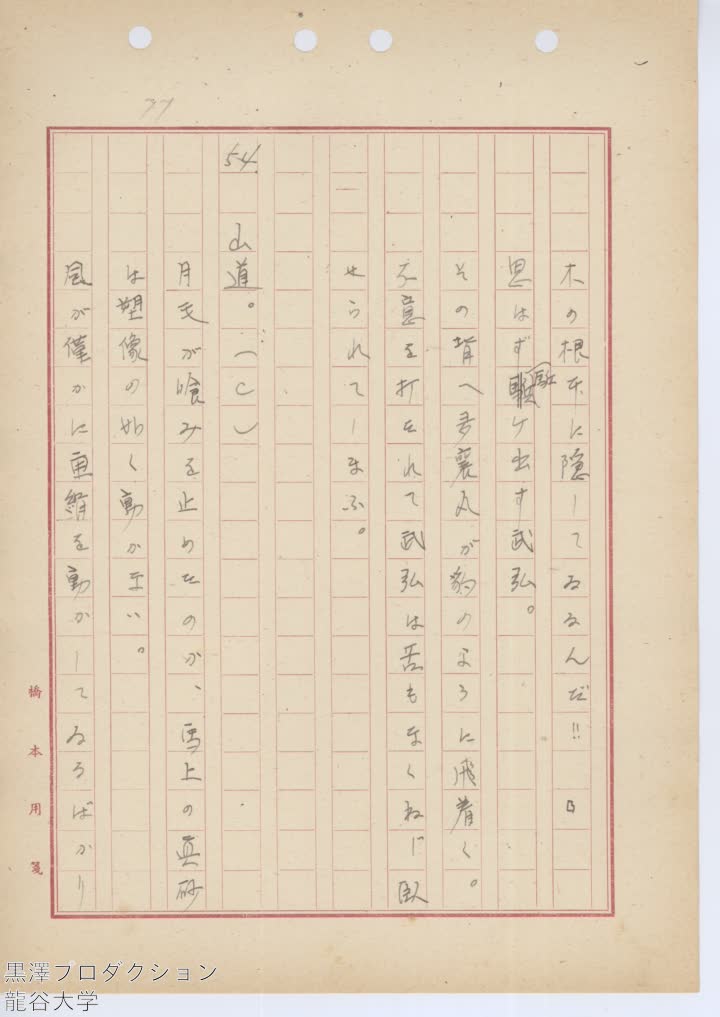 77
木の根本に隠してゐるんだ!!」
思はず駈ケ出す武弘。
その背へ多襄丸が豹のように飛着く。
不意を打たれて武弘は苦もなくねじ臥
せられてしまふ。
54 山道。(C)
月毛が喰みを止めたのか、馬上の真砂
は塑像の如く動かない。
風が僅かに垂絹を動かしてゐるばかり
橋本用箋
黒澤プロダクション
龍谷大学